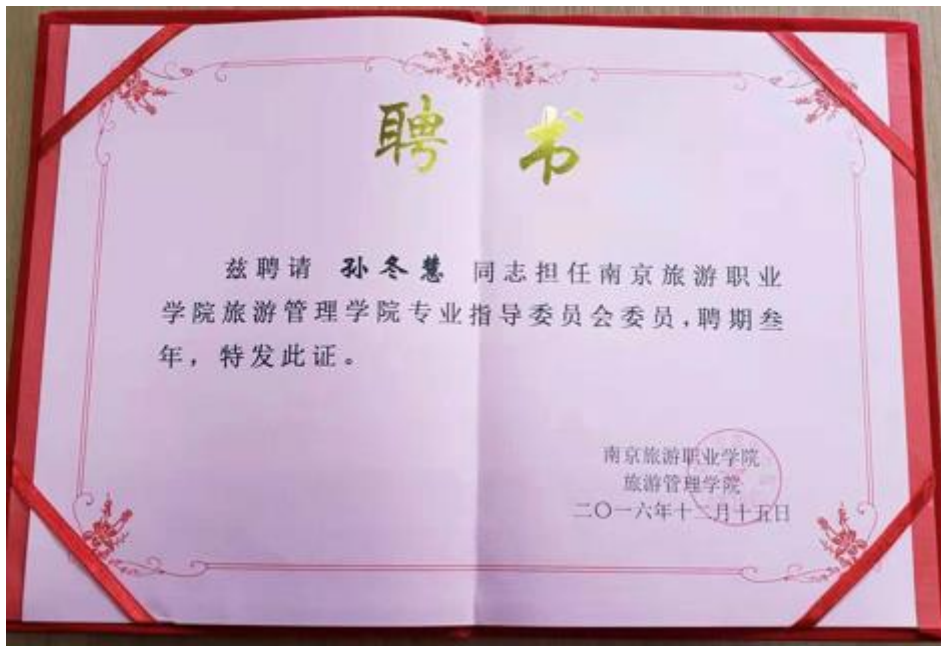 聘书
兹聘请 孙冬慧 同志担任南京旅游职业
学院旅游管理学院专业指导委员会委员,聘期叁
年，特发此证。
南京旅游职业学院
旅游管理学院
二〇一六年十二月十五日